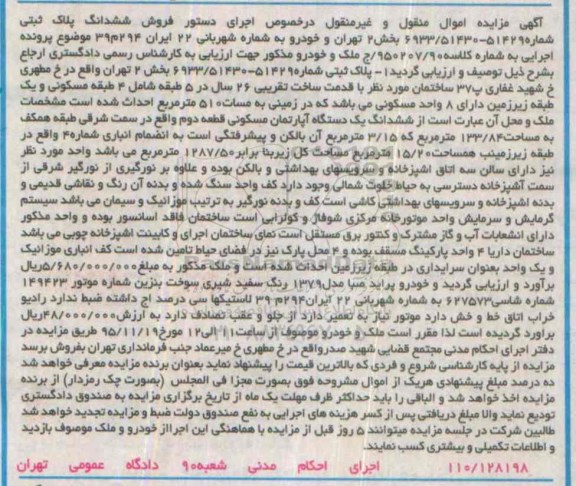 آگهی مزایده اموال منقول و غیرمنقول درخصوص اجرای دستور فروش ششدانگ پلاک ثبتی
شماره۵۱۴۲۹-۶۹۳۳/۵۱۴۳۰ بخش۲ تهران و خودرو به شماره شهربانی ۲۲ ایران ۲۹۴م۳۹ موضوع پرونده
اجرایی به شماره کلاسه۹۵۰۲۰۷/۹۰/ج ملک و خودرو مذکور جهت ارزیابی به کارشناس رسمی دادگستری ارجاع
بشرح ذیل توصیف و ارزیابی گردید۱- پلاک ثبتی شماره۵۱۴۲۹-۶۹۳۳/۵۱۴۳۰ بخش ۲ تهران واقع در خ مطهری
خ شهید غفاری پ۳۷ ساختمان مورد نظر با قدمت ساخت تقریبی ۲۶ سال در ۵ طبقه شامل ۴ طبقه مسکونی و یک
طبقه زیرزمین دارای ۸ واحد مسکونی می باشد که در زمینی به مسات۵۱۰ مترمربع احداث شده است مشخصات
ملک و محل آن عبارت است از ششدانگ یک دستگاه آپارتمان مسکونی قطعه دوم واقع در سمت شرقی طبقه همکف
به مساحت۱۳۳/۸۴ مترمربع که ۳/۱۵ مترمربع آن بالکن و پیشرفتگی است به انضمام انباری شماره۴ واقع در
طبقه زیرزمینب همساحت۱۵/۲۰ مترمربع مساحت کل زیربنا برابر۱۲۸۷/۵۰ مترمربع می باشد واحد مورد نظر
نیز دارای سالن سه اتاق اشپزخانه و سرویسهای بهداشتی و بالکن بوده و علاوه بر نورگیری از نورگیر شرقی از
سمت آشپزخانه دسترسی به حیاط خلوت شمالی وجود دارد کف واحد سنگ شده و بدنه آن رنگ و نقاشی قدیمی و
بدنه اشپزخانه و سرویسهای بهداشتی کاشی است کف و بدنه نورگیر به ترتیب موزائیک و سیمان می باشد سیستم
گرمایش و سرمایش واحد موتورخانه مرکزی شوفاژ و کولرآبی است ساختمان فاقد اسانسور بوده و واحد مذکور
دارای انشعابات آب و گاز مشترک و کنتور برق مستقل است نمای ساختمان اجرای و کابینت اشپزخانه چوبی می باشد
ساختمان داریا ۴ واحد پارکینگ مسقف بوده و ۴ محل پارک نیز در فضای حیاط تامین شده است کف انباری موزائیک
و یک واحد بعنوان سرایداری در طبقه زیرزمین احداث شده است و ملک مذکور به مبلغ۵/۶۸۰/۰۰۰/۰۰۰ریال
برآورد و ارزیابی گردید و خودرو پراید صبا مدل۱۳۷۹ رنگ سفید شیری سوخت بنزین شماره موتور ۱۴۹۴۲۳
شماره شاسی۶۲۷۵۷۳ به شماره شهربانی ۲۲ ایران۲۹۴م۳۹ لاستیکها سی درصد اج داشته ضبط ندارد رادیو
خراب اتاق خط و خش دارد موتور نیاز به تعمیر دارد از جلو و عقب تصادف دارد به ارزش۴۸/۰۰۰/۰۰۰ریال
براورد گردیده است لذا مقرر است ملک و خودرو موصوف از ساعت۱۱الی۱۲ مورخ۹۵/۱۱/۱۹ طریق مزایده در
دفتر اجرای احکام مدنی مجتمع قضایی شهید صدرواقع در خ مطهری خ میرعماد جنب فرمانداری تهران بفروش برسد
مزایده از پایه کارشناسی شروع و فردی که بالاترین قیمت را پیشنهاد نماید بعنوان برنده مزایده معرفی خواهد شد
ده درصد مبلغ پیشنهادی هریک از اموال مشروحه فوق بصورت مجزا فی المجلس (بصورت چک رمزدار) از برنده
مزایده اخذ خواهد شد و الباقی را باید حداکثر ظرف مهلت یک ماه از تاریخ برگزاری مزایده به صندوق دادگستری
تودیع نماید والا مبلغ دریافتی پس از کسر هزینه های اجرایی به نفع صندوق دولت ضبط و مزایده تجدید خواهد شد
طالبین شرکت در جلسه مزایده میتوانند ۵ روز قبل از مزایده با هماهنگی این اجرااز خودرو و ملک موصوف بازدید
و اطلاعات تکمیلی و بیشتری کسب نمایند.
۱۱۰/۱۲۸۱۹۸ اجرای احکام مدنی شعبه۹۰ دادگاه عمومی تهران